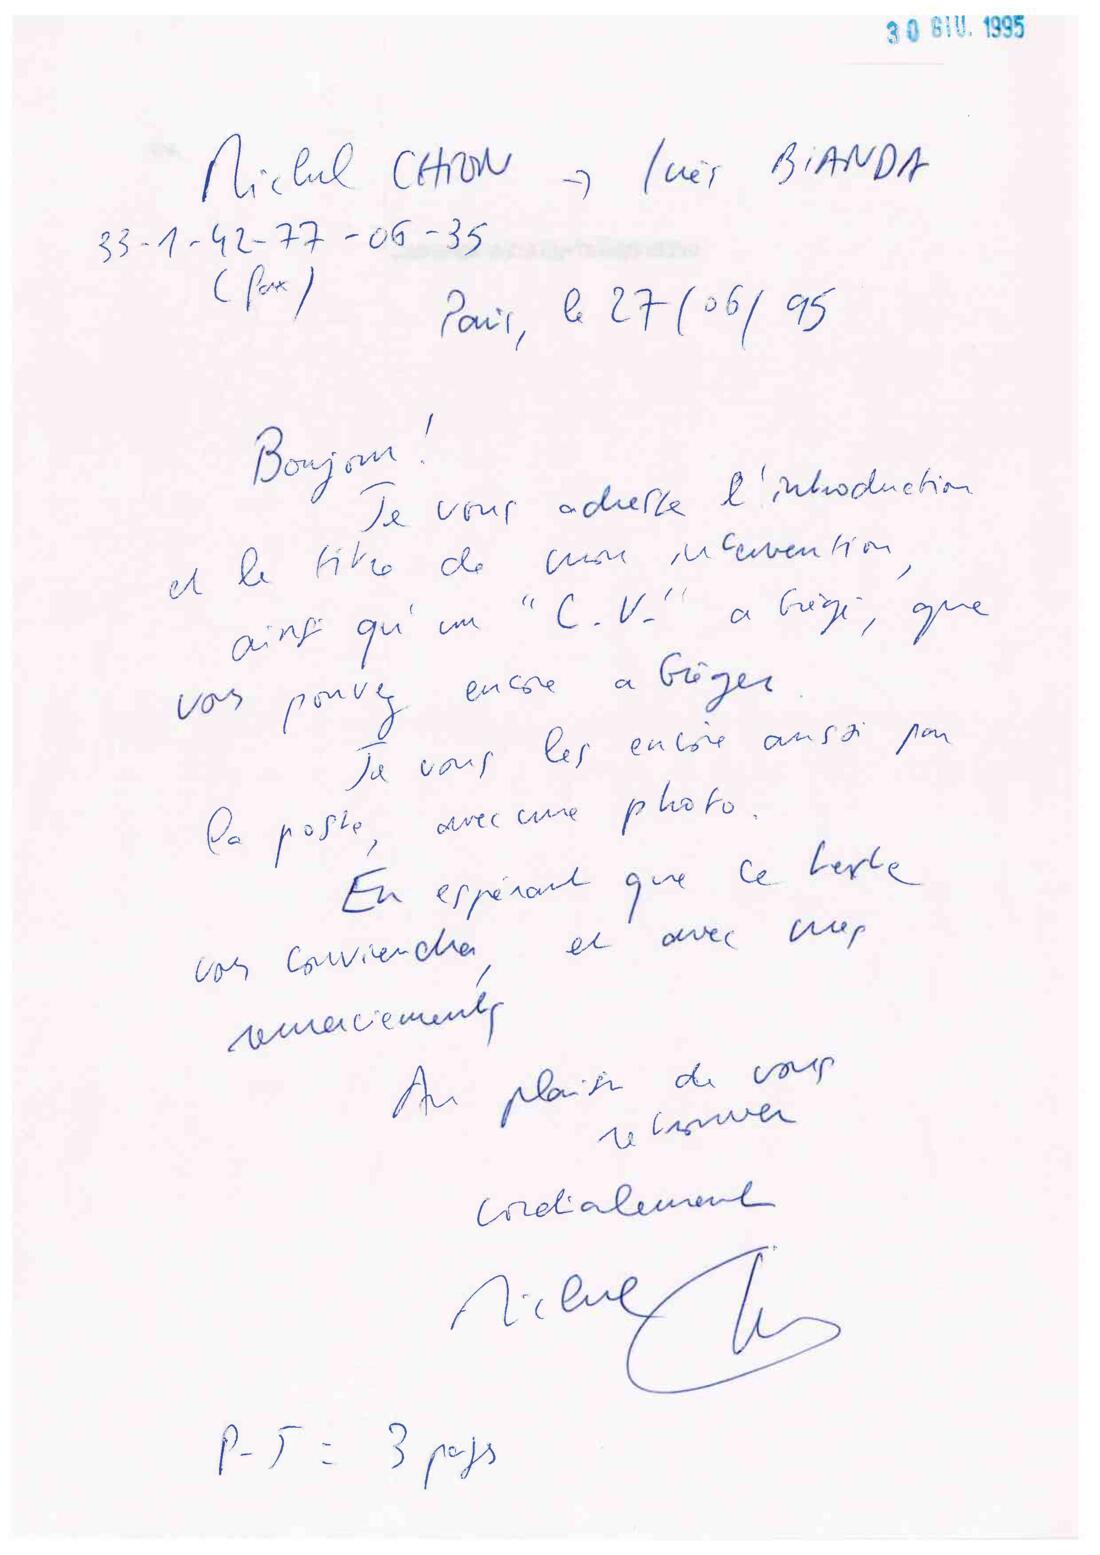 30 GIU. 1995
Michel CHION → Inès BIANDA
33-1-42-77-06-35
(fax)
Paris, le 27/06/95
Bonjour!
Je vous adresse l'introduction
et le titre de mon intervention,
ainsi qu'un "C.V." abrégé, que
vous pouvez encore abréger.
Je vous les envoie aussi par
la poste, avec une photo.
En espérant que ce texte
vous conviendra, et avec mes
remerciements
Au plaisir de vous
retrouver
Cordialement
Michel Chion
P-J = 3 pages